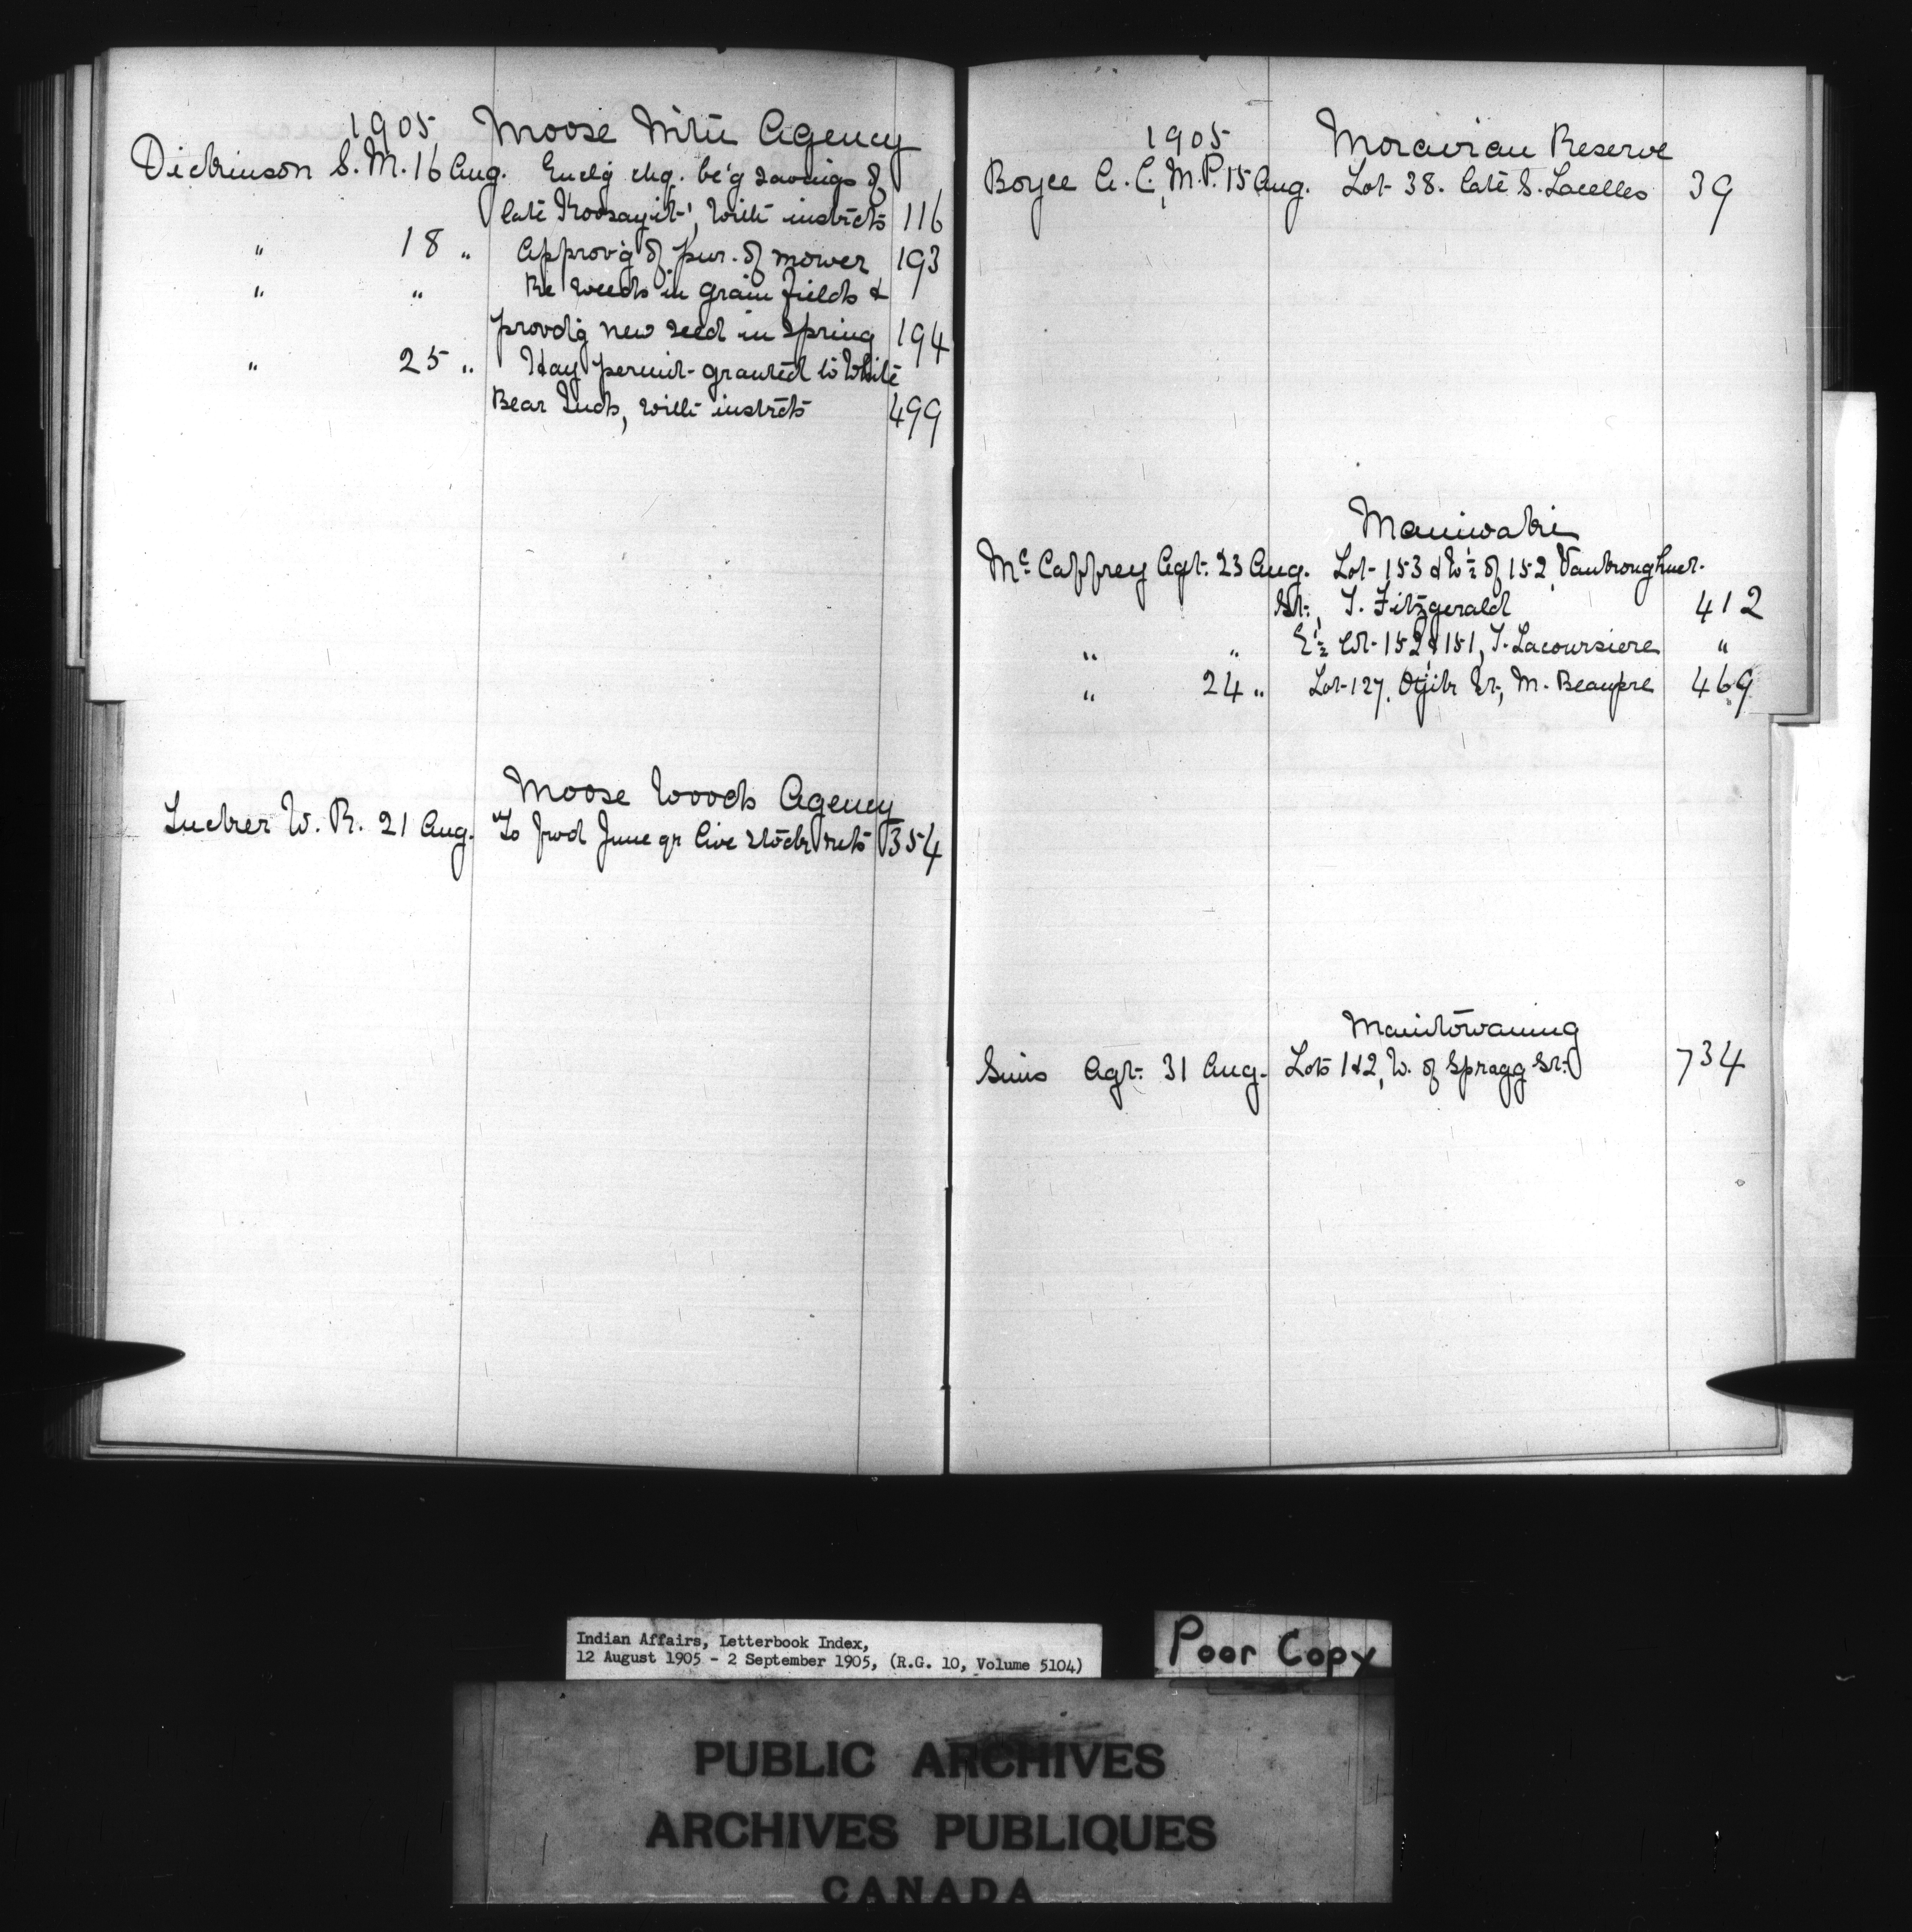 1905 Moose Mtn Agency
Dickinson S. M. 16 Aug. Enclg chq. be'g savings of
late Koosayit', with instrcts 116
" 18 " Approv'g of pur. of mower 193
" " Re weeds in grain fields &
provdg new seed in Spring 194
" 25 " Hay permit granted to White
Bear Inds, with instrcts 499
Moose Woods Agency
Tucker W. R. 21 Aug. To fwd June qr live stock rets 354
1905 Moravian Reserve
Boyce A. C., M.P. 15 Aug. Lot 38. late S. Lacelles 39
Maniwaki
McCaffrey Agt. 23 Aug. Lot 153 & W½ of 152, Vankoughnet
St., T. Fitzgerald 412
" " E½ lot 152 & 151, T. Lacoursiere "
" 24 " Lot 127, St., M. Beaupre 469
Manitowaning
Sims Agt. 31 Aug. Lots 1 & 2, W. of Spragg St. 734
Indian Affairs, Letterbook Index,
12 August 1905 - 2 September 1905, (R.G. 10, Volume 5104)
Poor Copy
PUBLIC ARCHIVES
ARCHIVES PUBLIQUES
CANADA